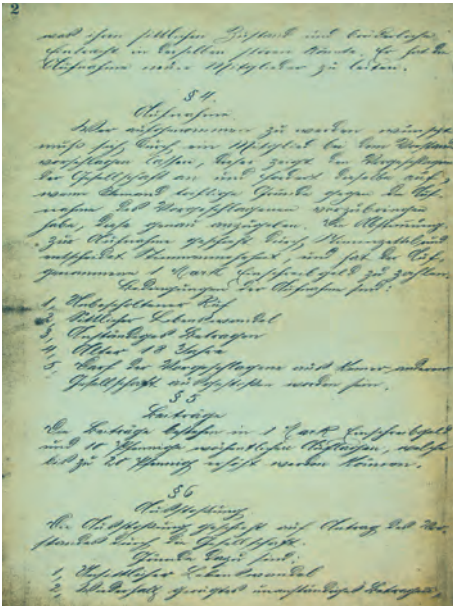 2
was ihren sittlichen Zustand und brüderliche
Eintracht in derselben stören könnte. Er hat die
Aufnahme neuer Mitglieder zu leiten.
§ 4.
Aufnahme.
Wer aufgenommen zu werden wünscht
muß sich durch ein Mitglied bei dem Vorstand
vorschlagen lassen, dieser zeigt den Vorgeschlagenen
der Gesellschaft an und fordert dieselbe auf,
wenn Jemand triftige Gründe gegen die Auf-
nahme des Vorgeschlagenen vorzubringen
habe, diese genau anzugeben. Die Abstimmung
zur Aufnahme geschieht durch Stimmzettel und
entscheidet Stimmenmehrheit, und hat der Auf-
genommene 1 Mark Einschreibgeld zu zahlen.
Bedingungen der Aufnahme sind:
1, Unbescholtener Ruf
2, Sittlicher Lebenswandel
3, Anständiges Betragen
4, Alter 18 Jahre
5, Darf der Vorgeschlagene aus keiner anderen
Gesellschaft ausgestoßen worden sein.
§ 5
Beiträge
Die Beiträge bestehen in 1 Mark Einschreibgeld
und 10 Pfennige wöchentlichen Auflagen, welche
bis zu 20 Pfennig erhöht werden können.
§ 6
Ausstoßung
Die Ausstoßung geschieht auf Antrag des Vor-
standes durch die Gesellschaft.
Gründe dazu sind:
1, Unsittlicher Lebenswandel
2, Wiederholt gerügtes unanständiges Betragen,